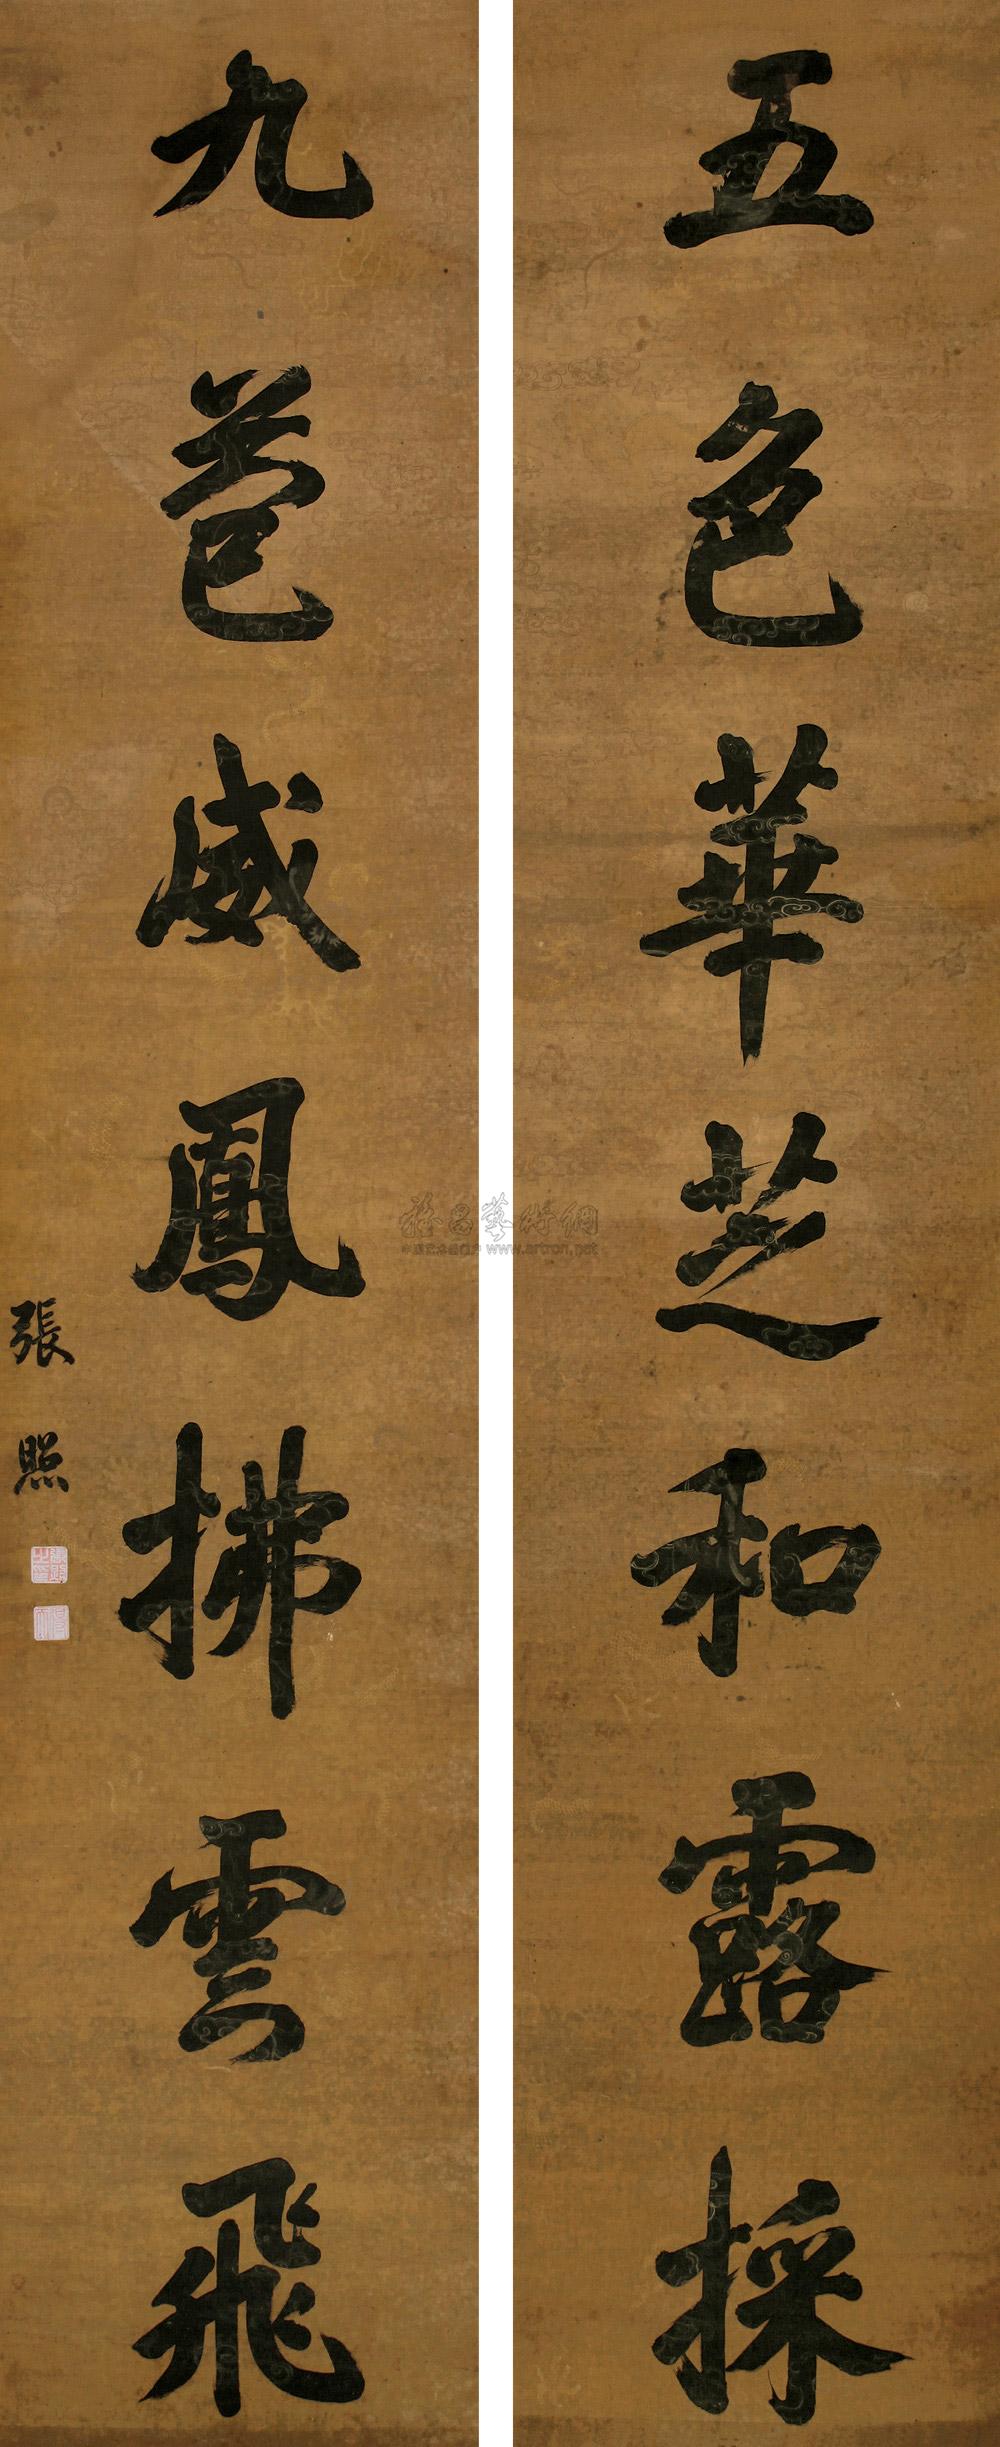 五色華芝和露採
九苞威鳳拂雲飛
張照
www.artron.net